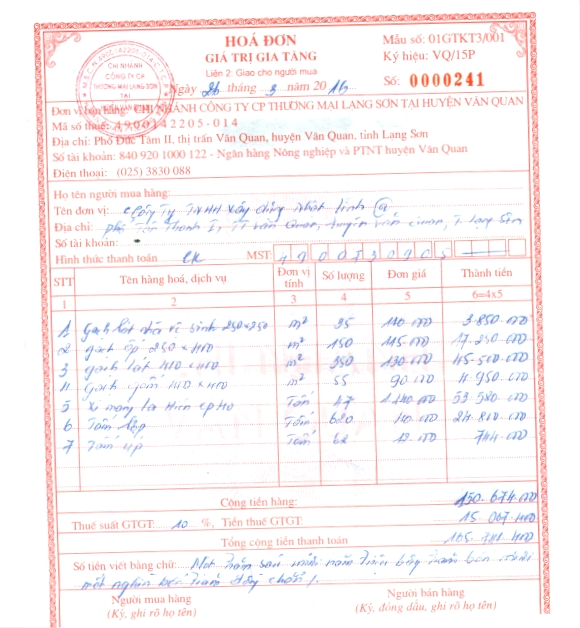 HOÁ ĐƠN
GIÁ TRỊ GIA TĂNG
Liên 2: Giao cho người mua
Mẫu số: 01GTKT3/001
Ký hiệu: VQ/15P
Số: 0000241
Ngày 26 tháng 3 năm 2016
CHI NHÁNH
CÔNG TY CP
THƯƠNG MẠI LẠNG SƠN
Đơn vị bán hàng: CHI NHÁNH CÔNG TY CP THƯƠNG MẠI LẠNG SƠN TẠI HUYỆN VĂN QUAN
Mã số thuế: 4900142205-014
Địa chỉ: Phố Đức Tâm II, thị trấn Văn Quan, huyện Văn Quan, tỉnh Lạng Sơn
Số tài khoản: 840 920 1000 122 - Ngân hàng Nông nghiệp và PTNT huyện Văn Quan
Điện thoại: (025) 3830 088
Họ tên người mua hàng:
Tên đơn vị: Công Ty TNHH Xây dựng
Địa chỉ: phố Tân Thanh I, TT Văn Quan, huyện Văn Quan, T. Lạng Sơn
Số tài khoản:
Hình thức thanh toán CK MST:
STT Tên hàng hoá, dịch vụ Đơn vị tính Số lượng Đơn giá Thành tiền
1 2 3 4 5 6=4x5
1 Gạch vệ sinh 250×250 m² 35 110.000 3.850.000
2 gạch ốp 250×400 m² 150 115.000 17.250.000
3 gạch lát 400×400 m² 350 130.000 45.500.000
4 gạch 400×400 m² 55 90.000 4.950.000
5 Xi măng Tấn 47 1.140.000 53.580.000
6 Tấm lợp Tấm 620 40.000 24.800.000
7 Tấm úp Tấm 62 12.000 744.000
Cộng tiền hàng: 150.674.000
Thuế suất GTGT: 10 %, Tiền thuế GTGT: 15.067.400
Tổng cộng tiền thanh toán 165.741.400
Số tiền viết bằng chữ: Một trăm sáu mươi năm triệu bảy trăm bốn mươi
mốt nghìn bốn trăm đồng chẵn /
Người mua hàng
(Ký, ghi rõ họ tên)
Người bán hàng
(Ký, đóng dấu, ghi rõ họ tên)